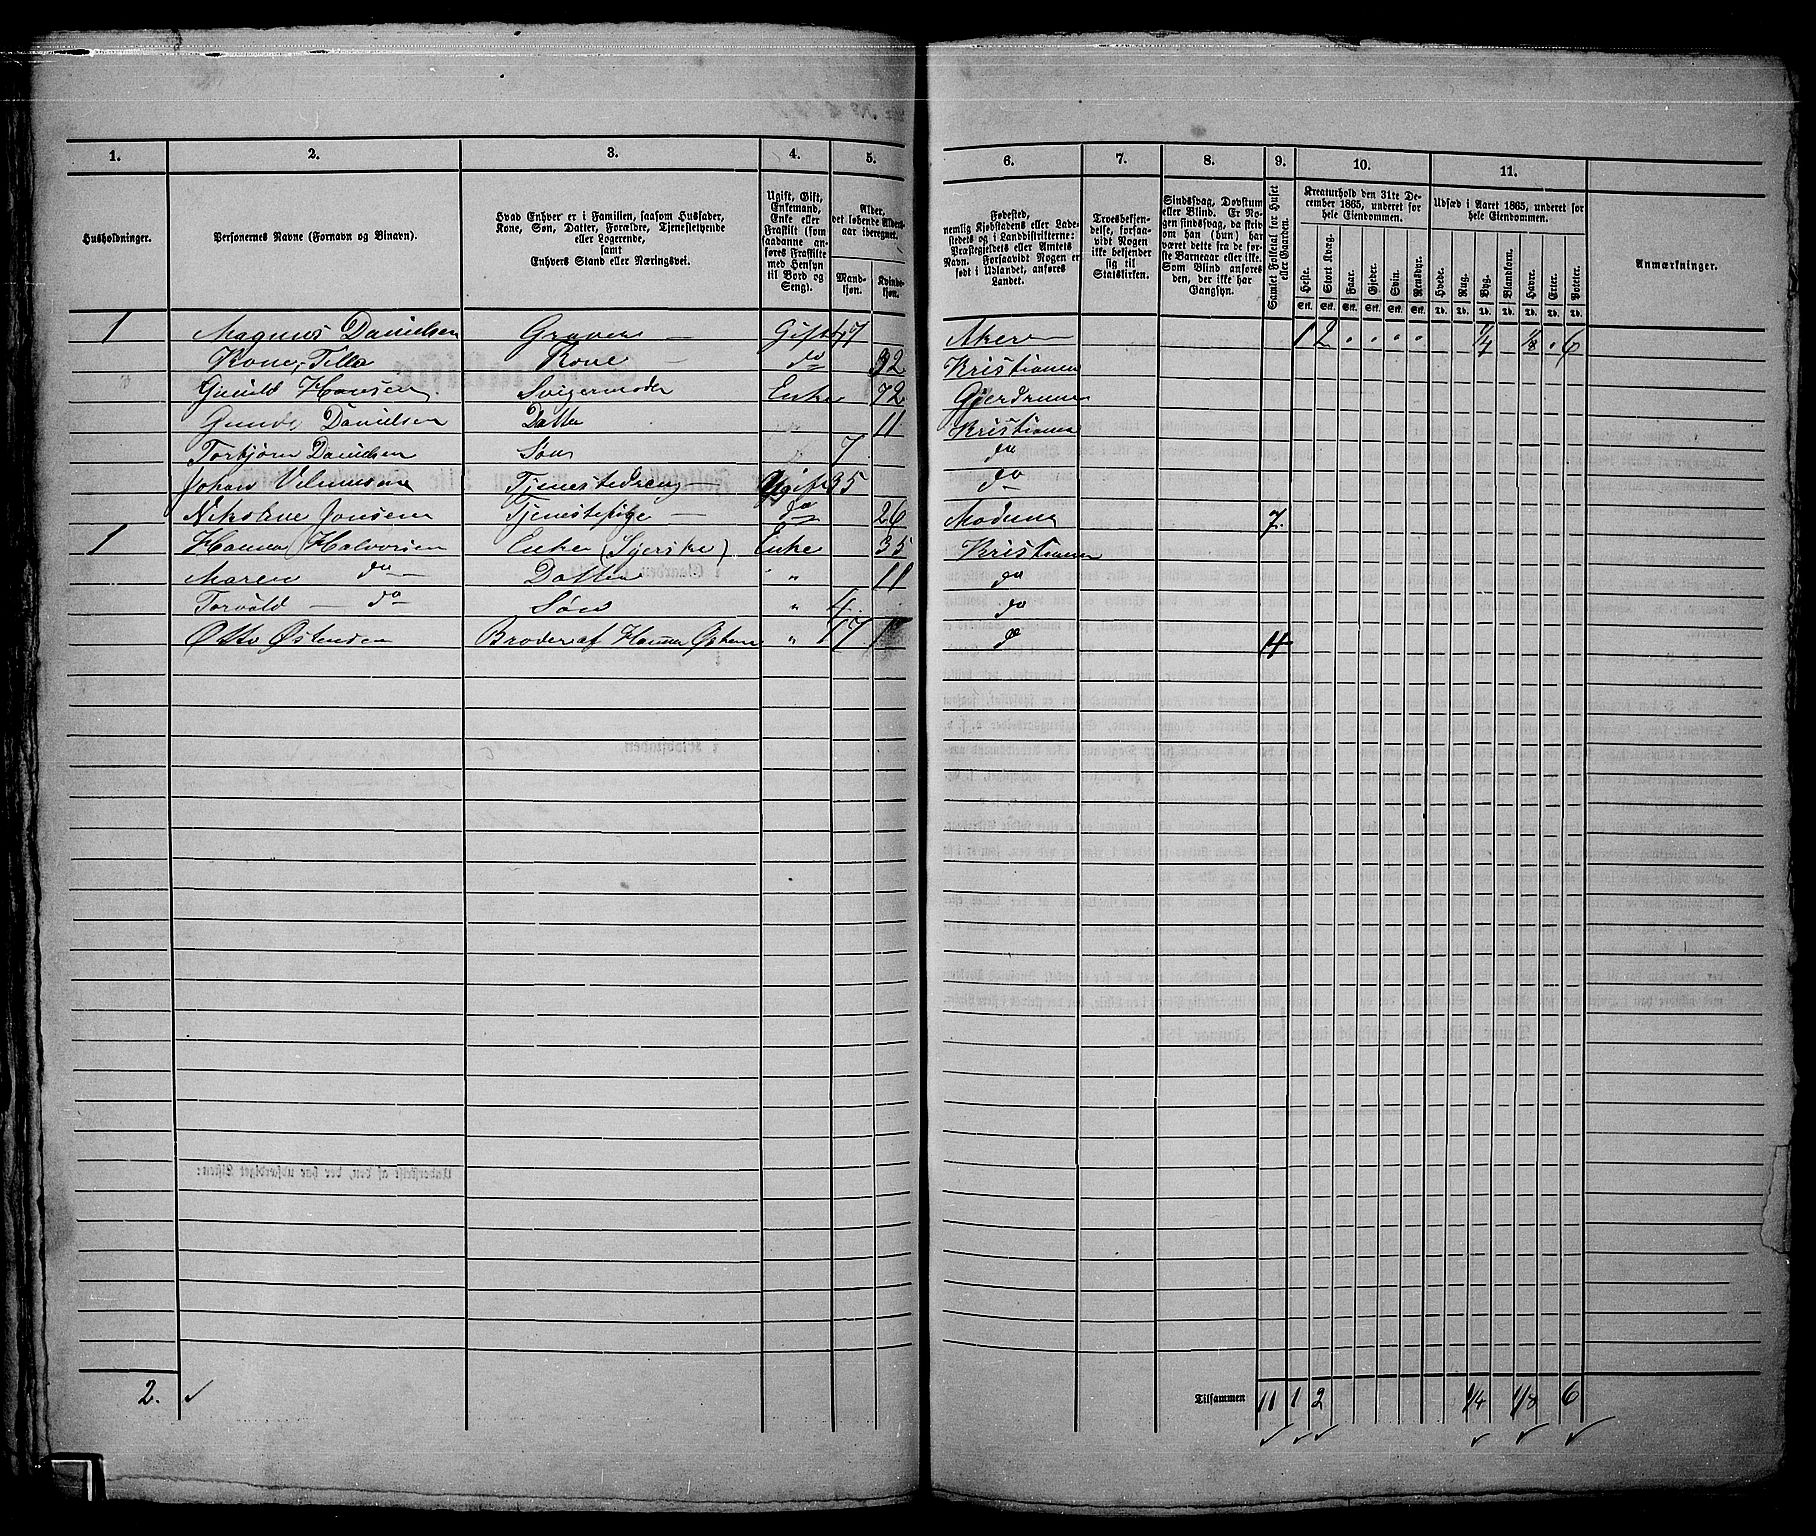 1. 2. 3. 4. 5. 6. 7. 8. 9. 10. 11.
Husholdninger.
Personernes Navne (Fornavn og Binavn).
Hvad Enhver er i Familien, saasom Husfader,
Kone, Søn, Datter, Forældre, Tjenestetyende
eller Logerende,
samt
Enhvers Stand eller Næringsvei.
Ugift, Gift,
Enkemand,
Enke eller
Fraskilt (som
saadanne an-
føres Fraskilte
med Hensyn
til Bord og
Seng).
Alder,
det løbende Alders-
aar iberegnet.
Mand-
kjøn.
Kvinde-
kjøn.
Fødested,
nemlig Kjøbstadens eller Lade-
stedets og i Landdistrikterne:
Præstegjeldets eller Amtets
Navn. Forsaavidt Nogen er
født i Udlandet, anføres
Landet.
Troesbekjen-
delse, forsaa-
vidt Nogen
ikke bekjender
sig til
Statskirken.
Sindssvag, Døvstum
eller Blind. Er No-
gen sindssvag, da skriv
om han (hun) har
været dette fra de før-
ste Barneaar eller ikke.
Som Blind anføres
den, der ikke har
Gangsyn.
Samlet Folketal for Huset
eller Gaarden.
Kreaturhold den 31te De-
cember 1865, underet for
hele Eiendommen.
Heste. Stort Kvæg. Faar. Gjeder. Svin. Rensdyr.
Stk. Stk. Stk. Stk. Stk. Stk.
Udsæd i Aaret 1865, underet for
hele Eiendommen.
Hvede. Rug. Byg. Blandkorn. Havre. Erter. Poteter.
Td. Td. Td. Td. Td. Td. Td.
Anmærkninger.
1 Magnus Danielsen Graver Gift 47 Aker 1 2 . . . . 1/4 1/8 . 6
Kone, Tilla Kone do 32 Kristiania
Gunild Hansen Svigermoder Enke 72 Gjerdrum
Danielsen Datter 11 Kristiania
Torbjørn Danielsen Søn 7 do
Johan Tjenestedreng Ugift 35 do
Nikoline Jonsen Tjenestepige do 26 Modum 7.
1 Hanna Halvorsen Enke (Syerske) Enke 35 Kristiania
Maren do Datter " 11 do
Torvald do Søn " 4. do
Otto Østensen Broder af Hanna " 47 do 4
2. Tilsammen 11 1 2 1/4 1/8 6